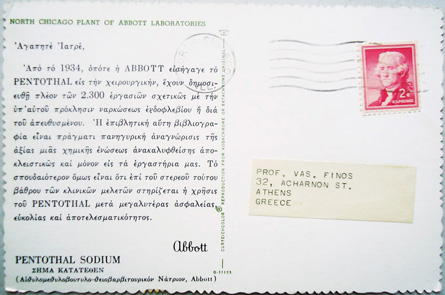 NORTH CHICAGO PLANT OF ABBOTT LABORATORIES
Ἀγαπητὲ Ἰατρέ,
Ἀπὸ τὸ 1934, ὁπότε ἡ ABBOTT εἰσήγαγε τὸ
PENTOTHAL εἰς τὴν χειρουργικήν, ἔχουν δημοσι-
ευθῆ πλέον τῶν 2.300 ἐργασιῶν σχετικῶς μὲ τὴν
ὑπ' αὐτοῦ πρόκλησιν ναρκώσεως ἐνδοφλεβίου ἢ διὰ
τοῦ ἀπευθυσμένου. Ἡ ἐπιβλητικὴ αὕτη βιβλιογρα-
φία εἶναι πράγματι πανηγυρικὴ ἀναγνώρισις τῆς
ἀξίας μιᾶς χημικῆς ἑνώσεως ἀνακαλυφθείσης ἀπο-
κλειστικῶς καὶ μόνον εἰς τὰ ἐργαστήρια μας. Τὸ
σπουδαιότερον ὅμως εἶναι ὅτι ἐπὶ τοῦ στερεοῦ τούτου
βάθρου τῶν κλινικῶν μελετῶν στηρίζεται ἡ χρῆσις
τοῦ PENTOTHAL μετὰ μεγαλυτέρας ἀσφαλείας,
εὐκολίας καὶ ἀποτελεσματικότητος.
Abbott
PENTOTHAL SODIUM
ΣΗΜΑ ΚΑΤΑΤΕΘΕΝ
(Αἰθυλομεθυλοβουτυλο-θειοβαρβιτουρικὸν Νάτριον, Abbott)
2¢
PROF. VAS. FINOS
32, ACHARNON ST.
ATHENS
GREECE